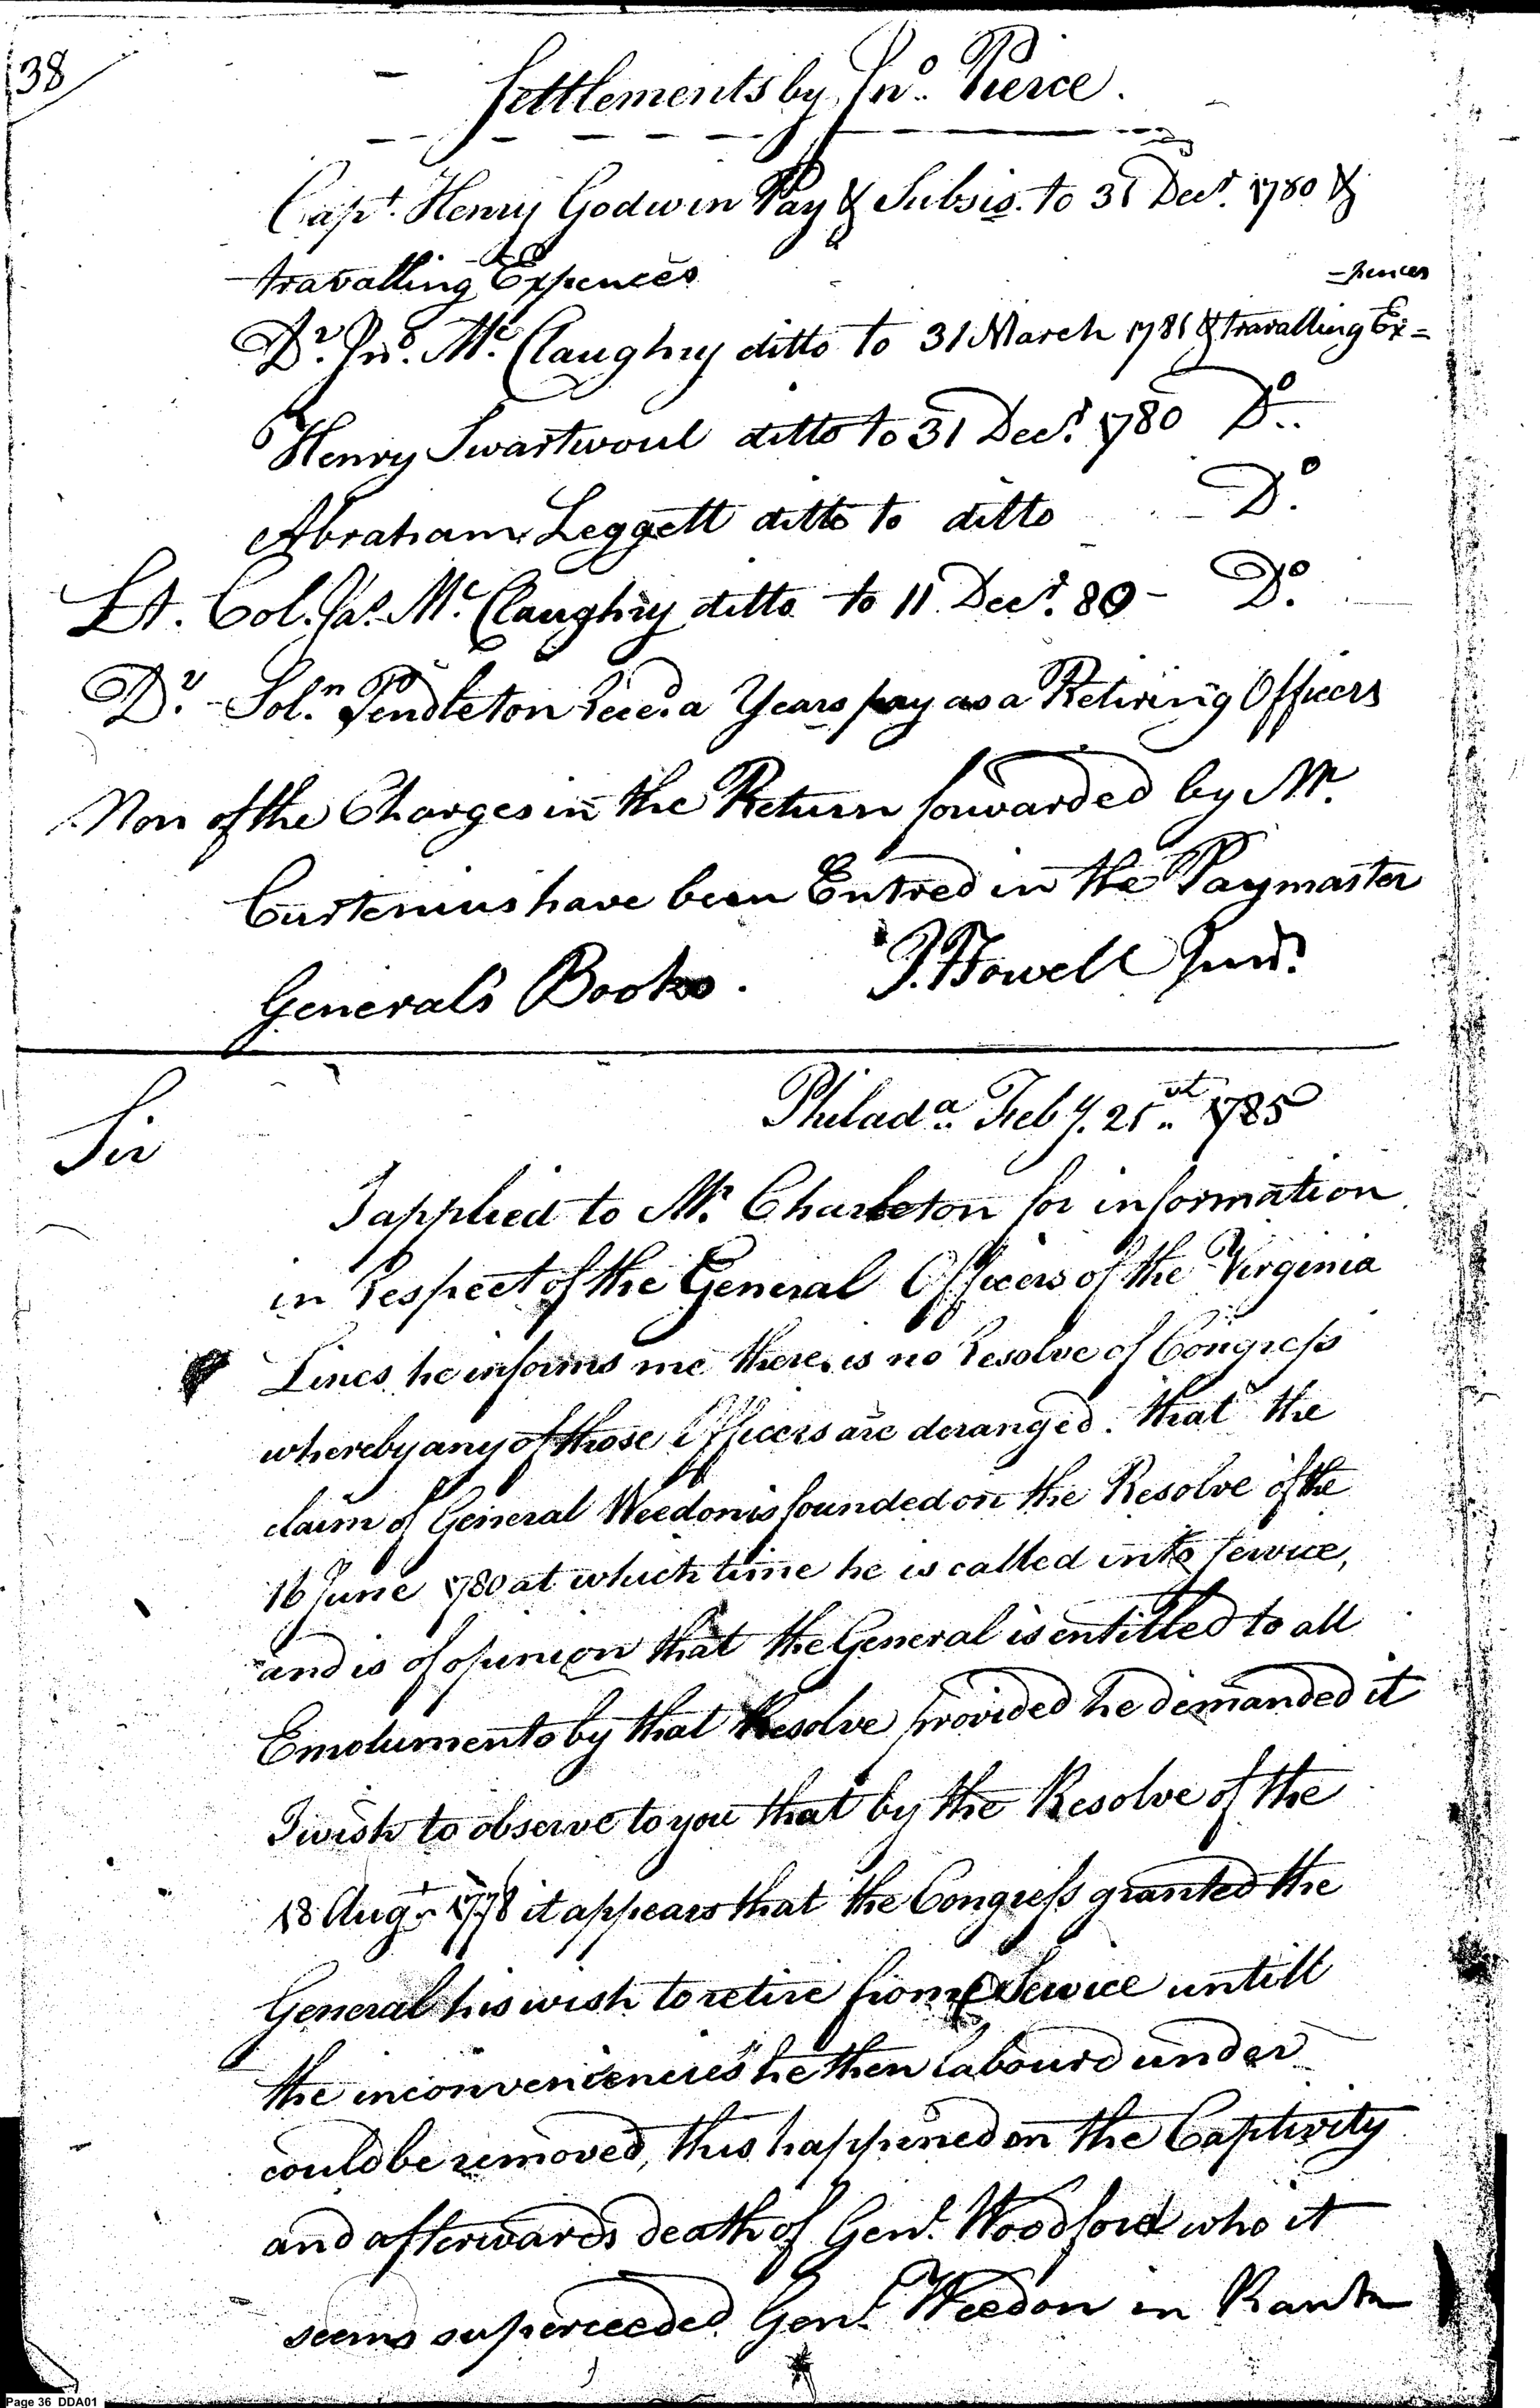 38
Settlements by Jno. Pierce.
Capt. Henry Godwin Pay & Subsis. to 31 Decr. 1780 &
travalling Expences
-pences
Dr. Jno. Mc.Claughry ditto to 31 March 1781 & travalling Ex=
Henry Swartwoul ditto to 31 Decr. 1780 Do..
Abraham Leggett ditto to ditto Do.
Lt. Col. Jas. Mc.Claughry ditto to 11 Decr. 80 - Do.
Dr. - Soln. Pendleton Recd. a Years pay as a Retiring Officers
Non of the Charges in the Return forwarded by Mr.
Curtenius have been Entred in the Paymaster
General's Books. J. Howell Junr.
Philada. Feby. 21st. 1785
Sir
I applied to Mr. Charleton for information
in Respect of the General Officers of the Virginia
Lines he informs me there is no Resolve of Congress
whereby any of those Officers are deranged. that the
claim of General Weedon is founded on the Resolve of the
16 June 1780 at which time he is called into service,
and is of opinion that the General is entitled to all
Emoluments by that Resolve provided he demanded it
I wish to observe to you that by the Resolve of the
18 Augt. 1778 it appears that the Congress granted the
General his wish to retire from Service untill
the inconveniencies he then labourd under
could be removed, this happened on the Captivity
and afterwards death of Genl. Woodford who it
seems superceeded Genl. Weedon in Rank
Page 36 DDA01